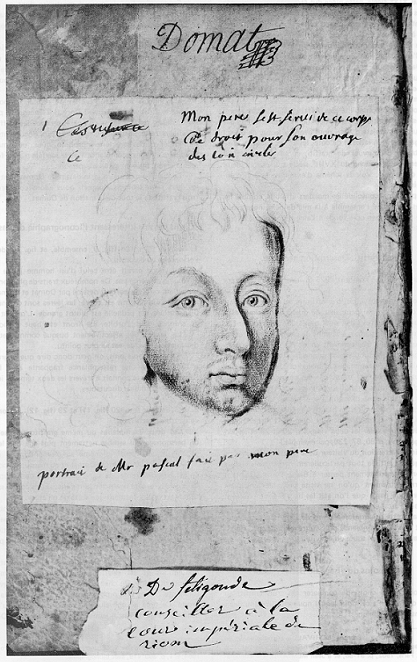 Domat
Mon pere s'est servi de ce corps
de droit pour son ouvrage
des loix civiles
ce
portrait de Mr pascal fait par mon pere
De feligonde
conseiller à la
cour impériale de
riom